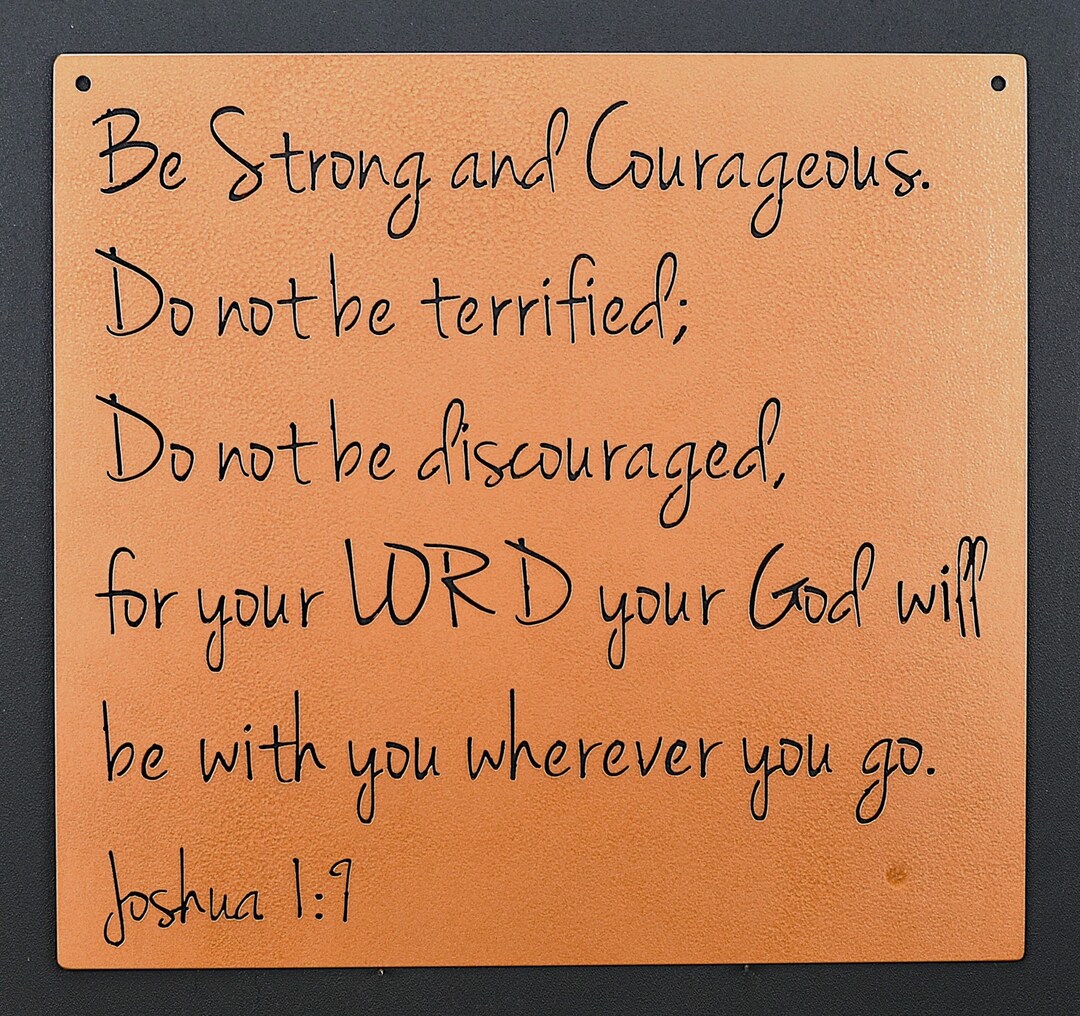 Be Strong and Courageous.
Do not be terrified;
Do not be discouraged,
for your LORD your God will
be with you wherever you go.
Joshua 1:9